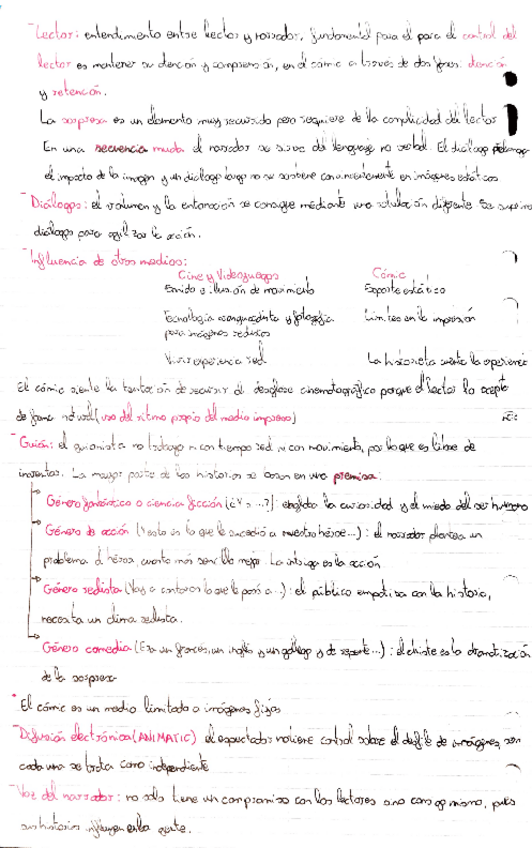 -Lector: entendimento entre lector y narrador, fundamental para el para el control del
lector es mantener su atención y comprensión, en el cómic a través de dos fases: atención
y retención.
La sorpresa es un elemento muy recurrido pero requiere de la complicidad del lector
En una secuencia muda el narrador se sirve del lenguaje no verbal. El diálogo prolonga
el impacto de la imagen y un diálogo largo no se sostiene convenientemente en imágenes estáticas
-Diálogos: el volumen y la entonación se consigue mediante una rotulación diferente. Se suprime
diálogos para agilizar la acción.
-Influencia de otros medios:
Cine y Videojuegos Cómic
Sonido e ilusión de movimiento Soporte estático
Tecnología vanguardista y fotografía Límites en la impresión
para imágenes realistas
Vivir experiencia real La historieta cuenta la experiencia
El cómic siente la tentación de recurrir al desglose cinematográfico porque el lector lo acepta
de forma natural (uso del ritmo propio del medio impreso)
-Guión: el guionista no trabaja ni con tiempo real ni con movimiento, por lo que es libre de
inventar. La mayor parte de las historias se basan en una premisa:
Género fantástico o ciencia ficción (¿Y si ...?): explota la curiosidad y el miedo del ser humano
Género de acción (Y esto es lo que le sucedió a nuestro héroe...): el narrador plantea un
problema al héroe, cuanto más sencillo mejor. La intriga es la acción
Género realista (Voy a contaros lo que le pasó a...): el público empatiza con la historia,
necesita un clima realista.
Género comedia (Era un francés, un inglés y un gallego y de repente...): el chiste es la dramatización
de la sorpresa
-El cómic es un medio limitado a imágenes fijas
-Difusión electrónica (ANIMATIC) el espectador no tiene control sobre el desfile de imágenes, son
cada una se trata como independiente
-Voz del narrador: no solo tiene un compromiso con los lectores sino consigo mismo, pues
sus historias influyen en la gente.